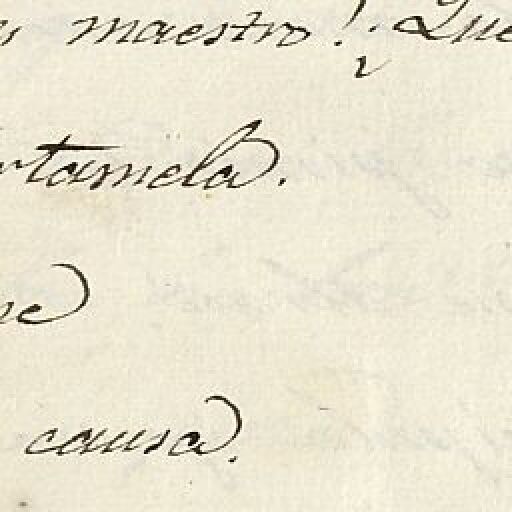 maestro! ¿Que
rtamela.
ne
causa.